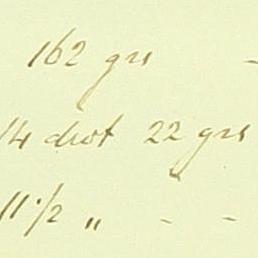 162 grs -
14 dwt 22 grs
11 1/2 " - -